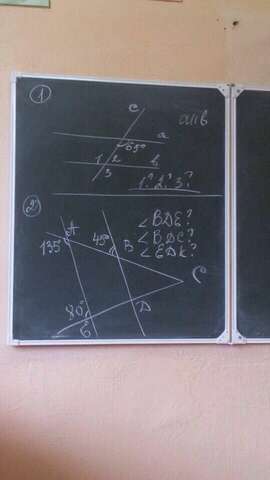 1
c
a || b
a
65°
1 2 b
3
1? 2? 3?
2
A
135°
45°
B
C
80°
E
D
< BDE?
< BDC?
< EDK?